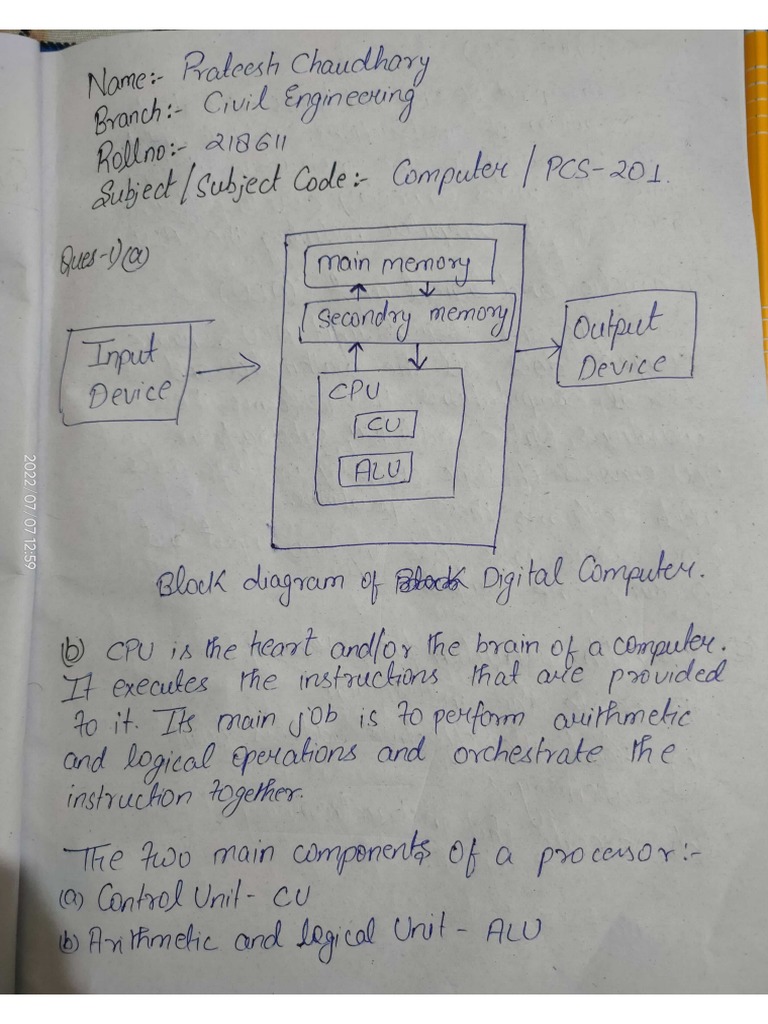 Name:- Prateesh Chaudhary
Branch:- Civil Engineering
Rollno:- 218611
Subject/Subject Code:- Computer / PCS-201.
Ques-1)(a)
main memory
Secondry memory
Input
Device
CPU
CU
ALU
Output
Device
Block diagram of Digital Computer.
(b) CPU is the heart and/or the brain of a computer.
It executes the instructions that are provided
to it. Its main job is to perform arithmetic
and logical operations and orchestrate the
instruction together.
The two main components of a processor:-
(a) Control Unit - CU
(b) Arithmetic and logical Unit - ALU
2022/07/07 12:59